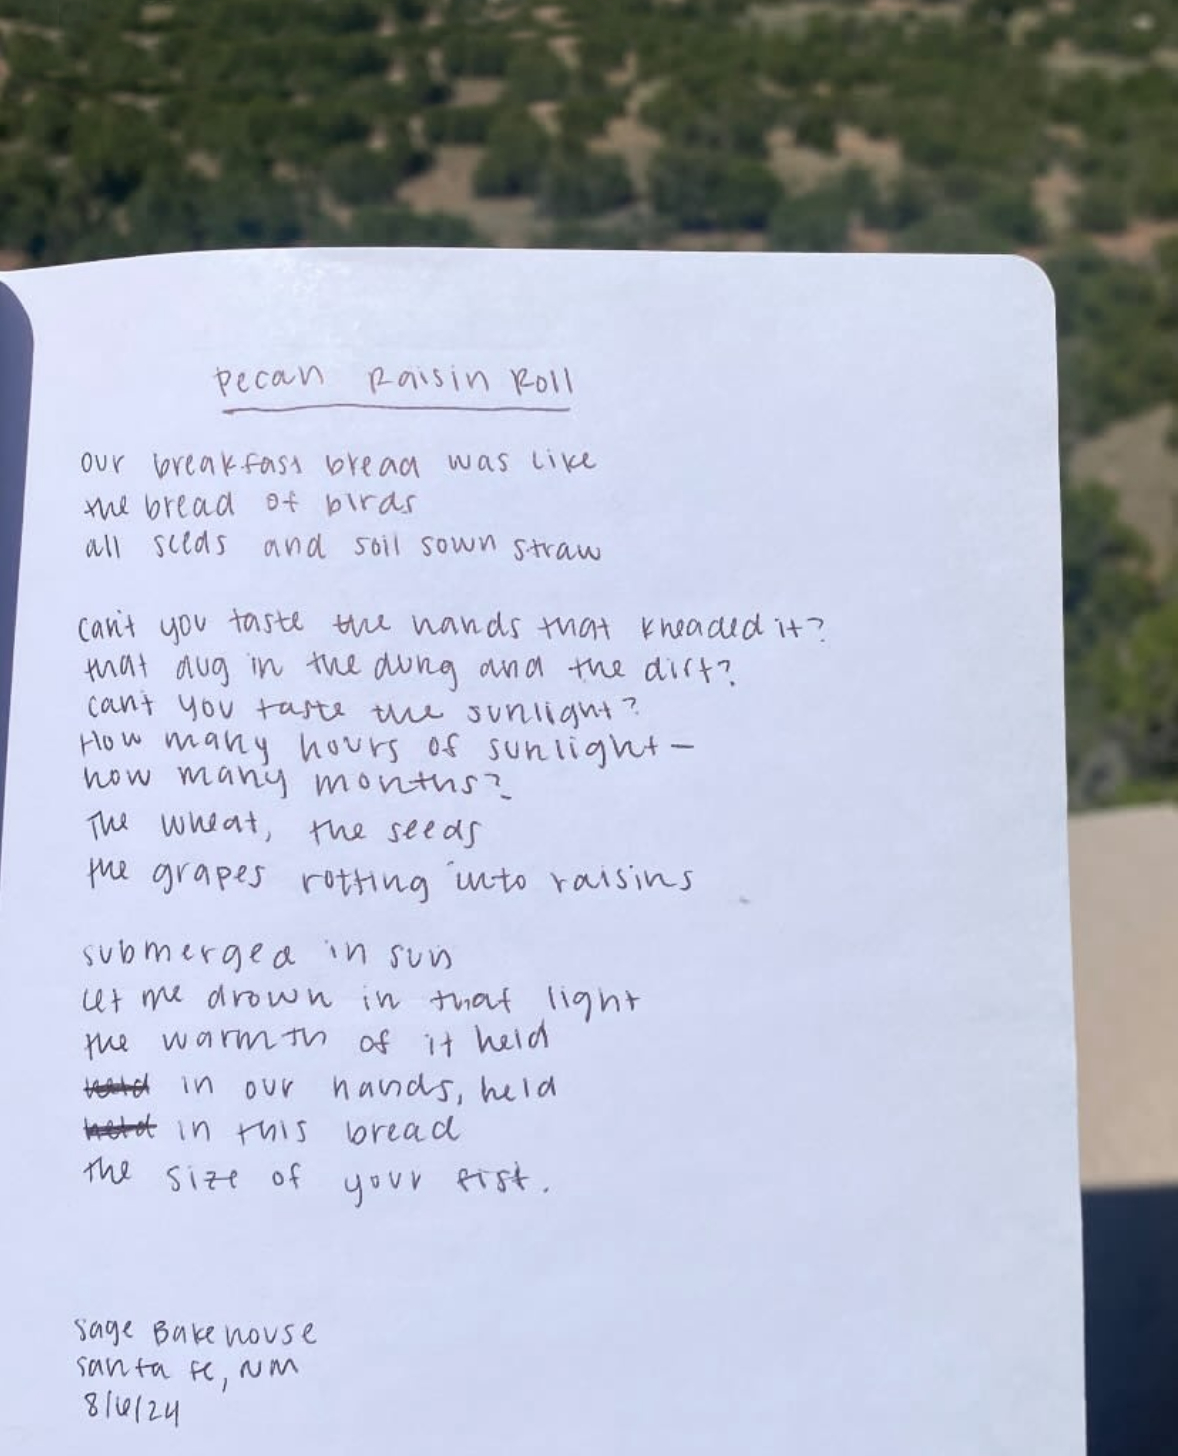 Pecan Raisin Roll
our breakfast bread was like
the bread of birds
all seeds and soil sown straw
can't you taste the hands that kneaded it?
that dug in the dung and the dirt?
can't you taste the sunlight?
How many hours of sunlight—
how many months?
The wheat, the seeds
the grapes rotting into raisins
submerged in sun
let me drown in that light
the warmth of it held
held in our hands, held
held in this bread
the size of your fist.
Sage Bakehouse
Santa Fe, NM
8/6/24